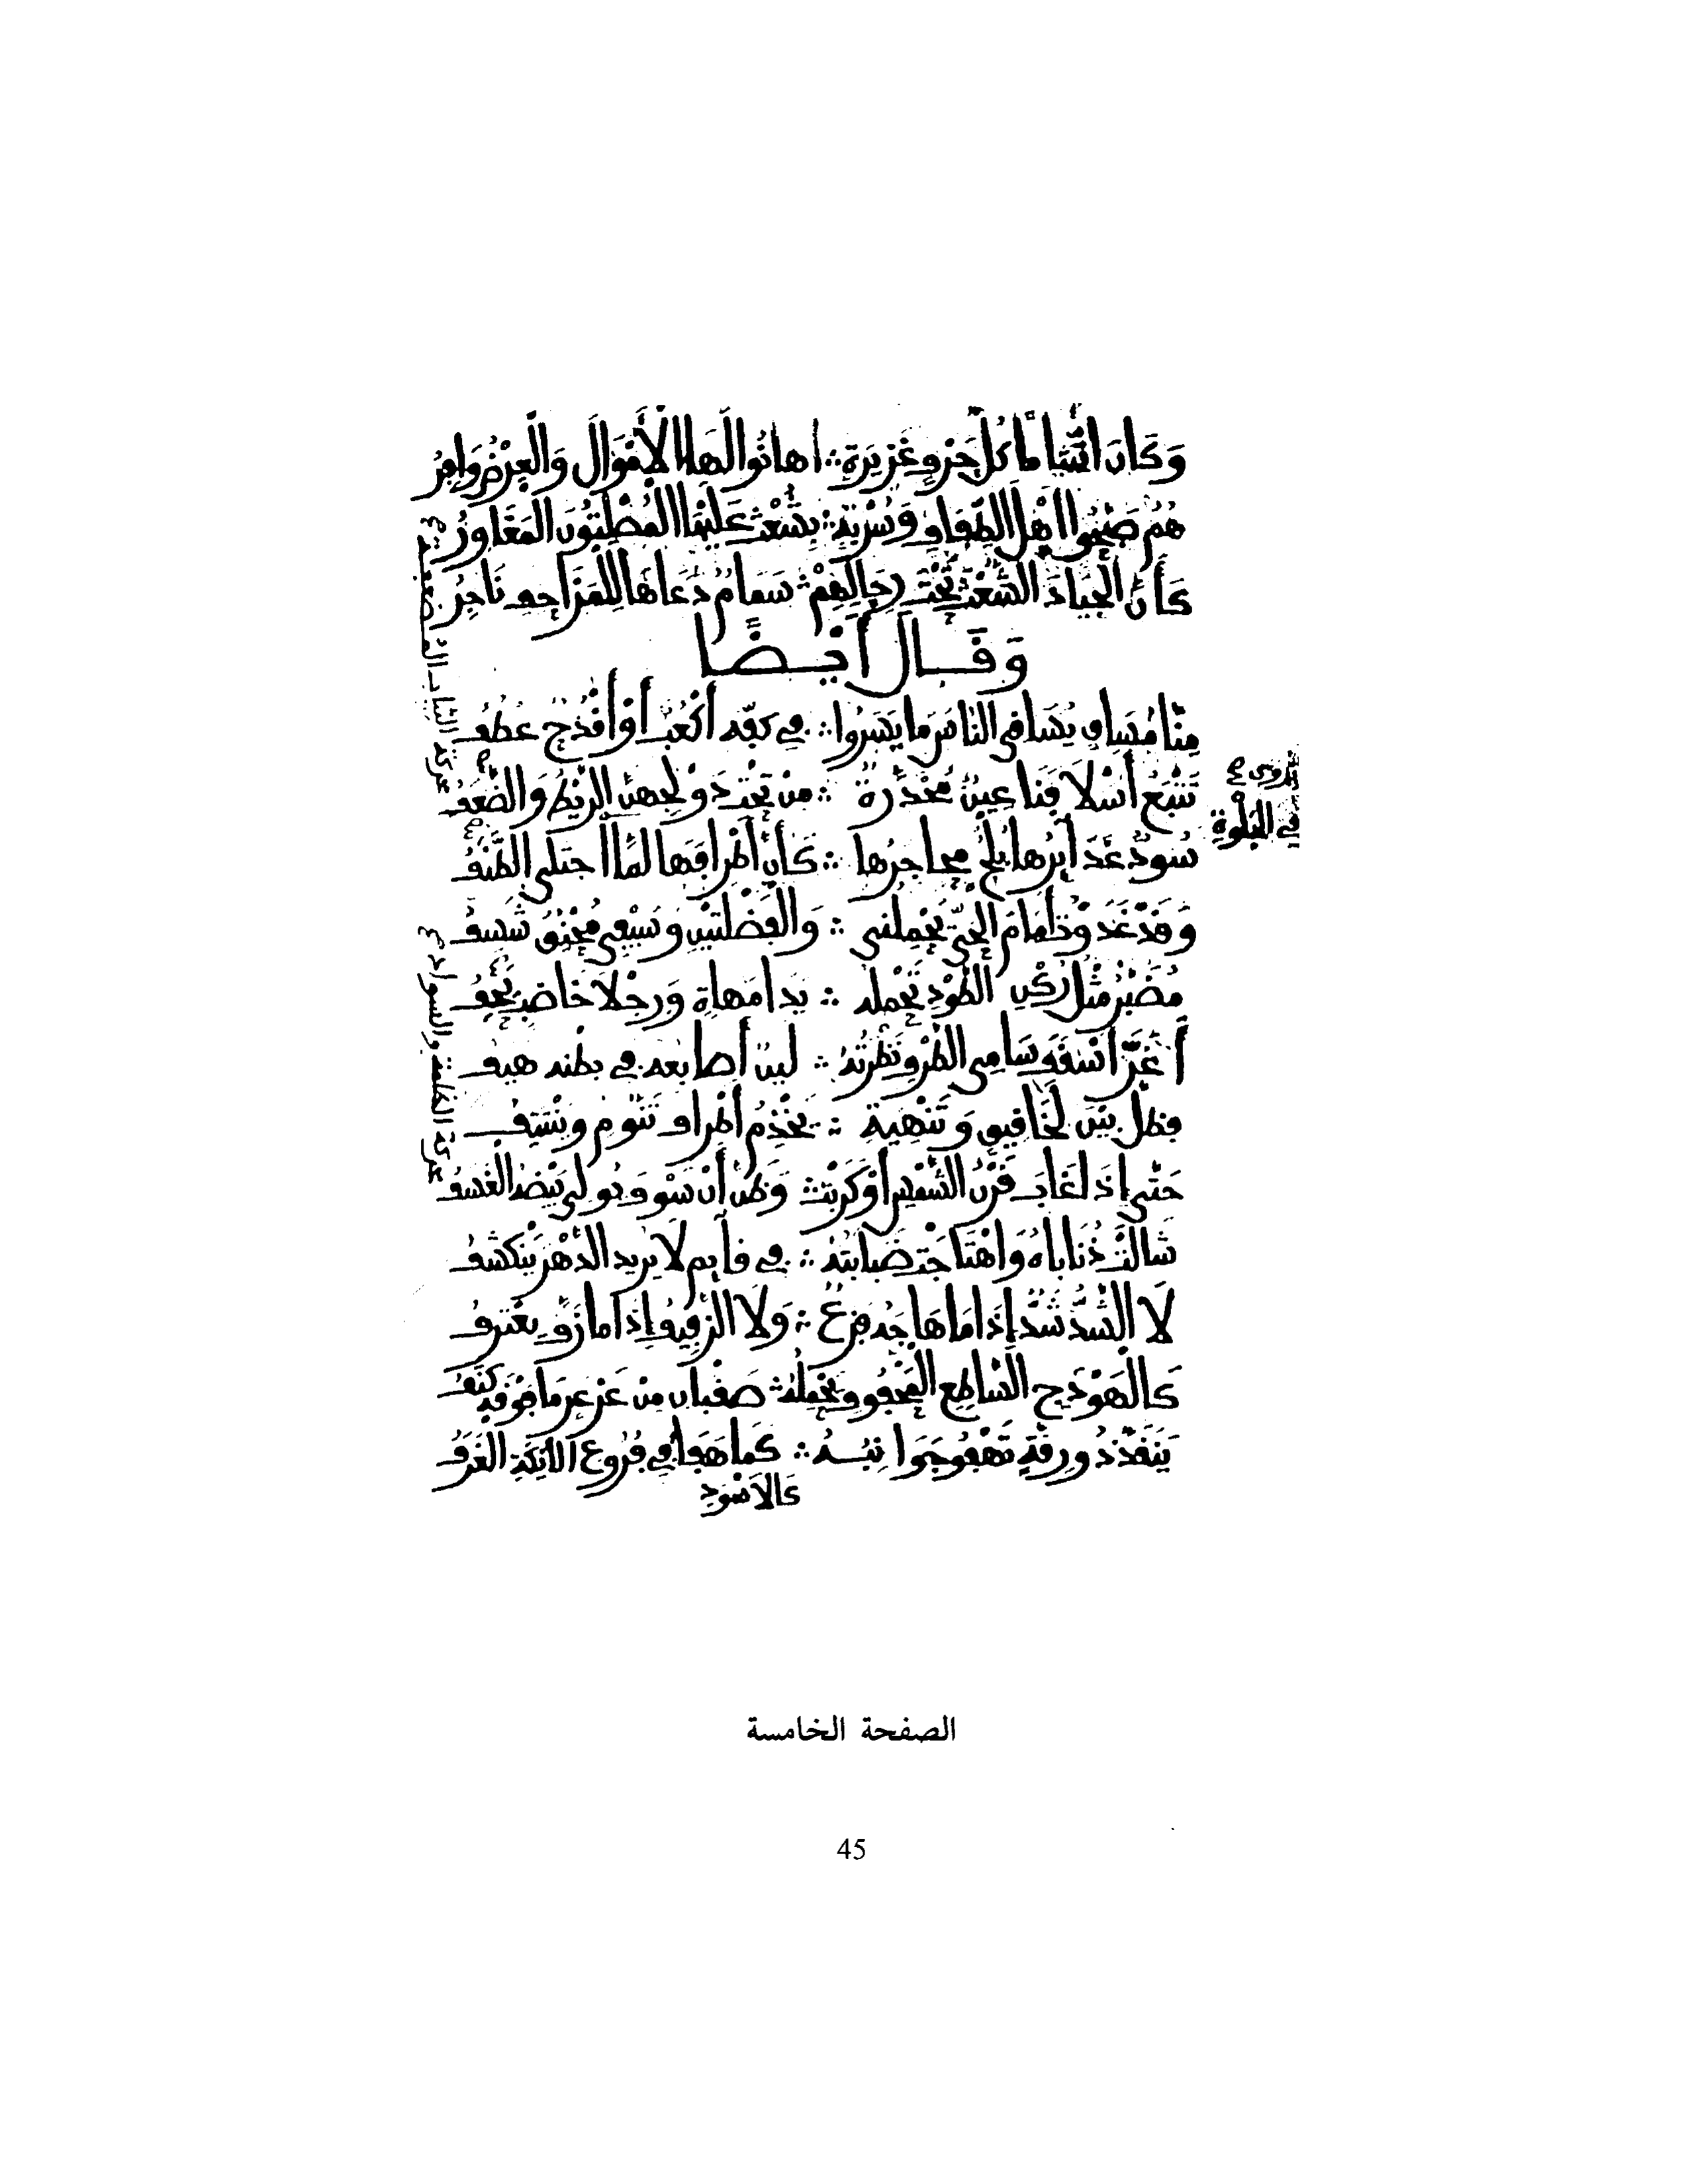 وَكَانَ اتِّسَامًا كُلَّ جَرْفٍ غَزِيرَةٍ ∴ اهانُوا لَهَا الأَمْوَالَ وَالْعِرْضُ وَافِرُ
هُمُ صَبَحُوا أَهْلَ الطِّفَافِ وَسُرْبَةٍ ∴ بِشُعْثٍ عَلَيْهَا الْمُصْلِتُونَ الْمَغَاوِرُ
كَأَنَّ الْجِيَادَ الشُّعْثَ تَحْتَ رِحَالِهِمْ ∴ سَمَامٌ دَعَاهَا لِلْمَزَاحِفِ نَاجِرُ
وَقَالَ أَيْضًا
مِنَّا مُسَافٍ يُسَافِي النَّاسَ مَا يَسَرُوا ∴ في كفّه أَكْعُبٌ أَوْ أَقْدُحٌ عُطُفُ
تَتْبَعُ أَسْلَافَنَا عِينٌ مُخَدَّرَةٌ ∴ من تَحْتِ دَوْلَجِهِنَّ الرَّيْطُ وَالضَّعَفُ
سُودٌ غَدَائِرُهَا بُلْجٌ مَحَاجِرُهَا ∴ كَأَنَّ أَطْرَافَهَا لَمَّا اجْتَلَى الطَّنَفُ
وَقَدْ غَدَوْتُ أَمَامَ الْحَيِّ يَحْمِلُنِي ∴ وَالْفَضْلَتَيْنِ وَسَيْفِي مُحْنِقٌ شَسِفُ
مُضَبَّرٌ مِثْلُ رُكْنِ الطَّوْدِ تَحْمِلُه ∴ يَدَا مَهَاةٍ وَرِجْلَا خَاضِبٍ يَجِفُ
أَغَرُّ أَسْقَفُ سَامِي الطَّرْفِ نَظْرَتُهُ ∴ لَيِّنٌ أصابعه في بطنه هيف
فظل بَيْنَ لَخَافِيقٍ وَتَنْهِيَةٍ ∴ يَخْذِمُ أَطْرَافَ تَنُّومٍ وَيَنْتَتِفُ
حَتَّى إِذَا غَابَ قَرْنُ الشَّمْسِ أَوْ كَرَبَتْ ∴ وَظَنَّ أَنْ سَوْفَ يُولِي بَيْضَهُ الْغَسَفُ
شَالَتْ ذُنَابَاهُ وَاهْتَاجَتْ ضَبَابَتُهُ ∴ في قَائِمٍ لَا يريد الدَّهْرَ يَنْكَشِفُ
لَا الشَّدُّ شَدٌّ إِذَا مَا هَاجَهُ فَزَعٌ ∴ وَلَا الزَّفِيفُ إِذَا ما زَفَّ يعترف
كَالْهَوْدَجِ السَّاطِعِ الْمَحْفُوفِ يَحْمِلُهُ ∴ صَقْبَانِ من عَرْعَرٍ مَا فَوْقَهُ كَنَفُ
يَنْقَدُّ ذُو رِقَّةٍ تَهْفُو جَوَانِبُهُ ∴ كَمَا هَفَا فِي فُرُوعِ الأَيْكَةِ الْغَرَفُ
كَالأَسْوَدِ
يروى
في البَلْوَةِ
الصفحة الخامسة
45